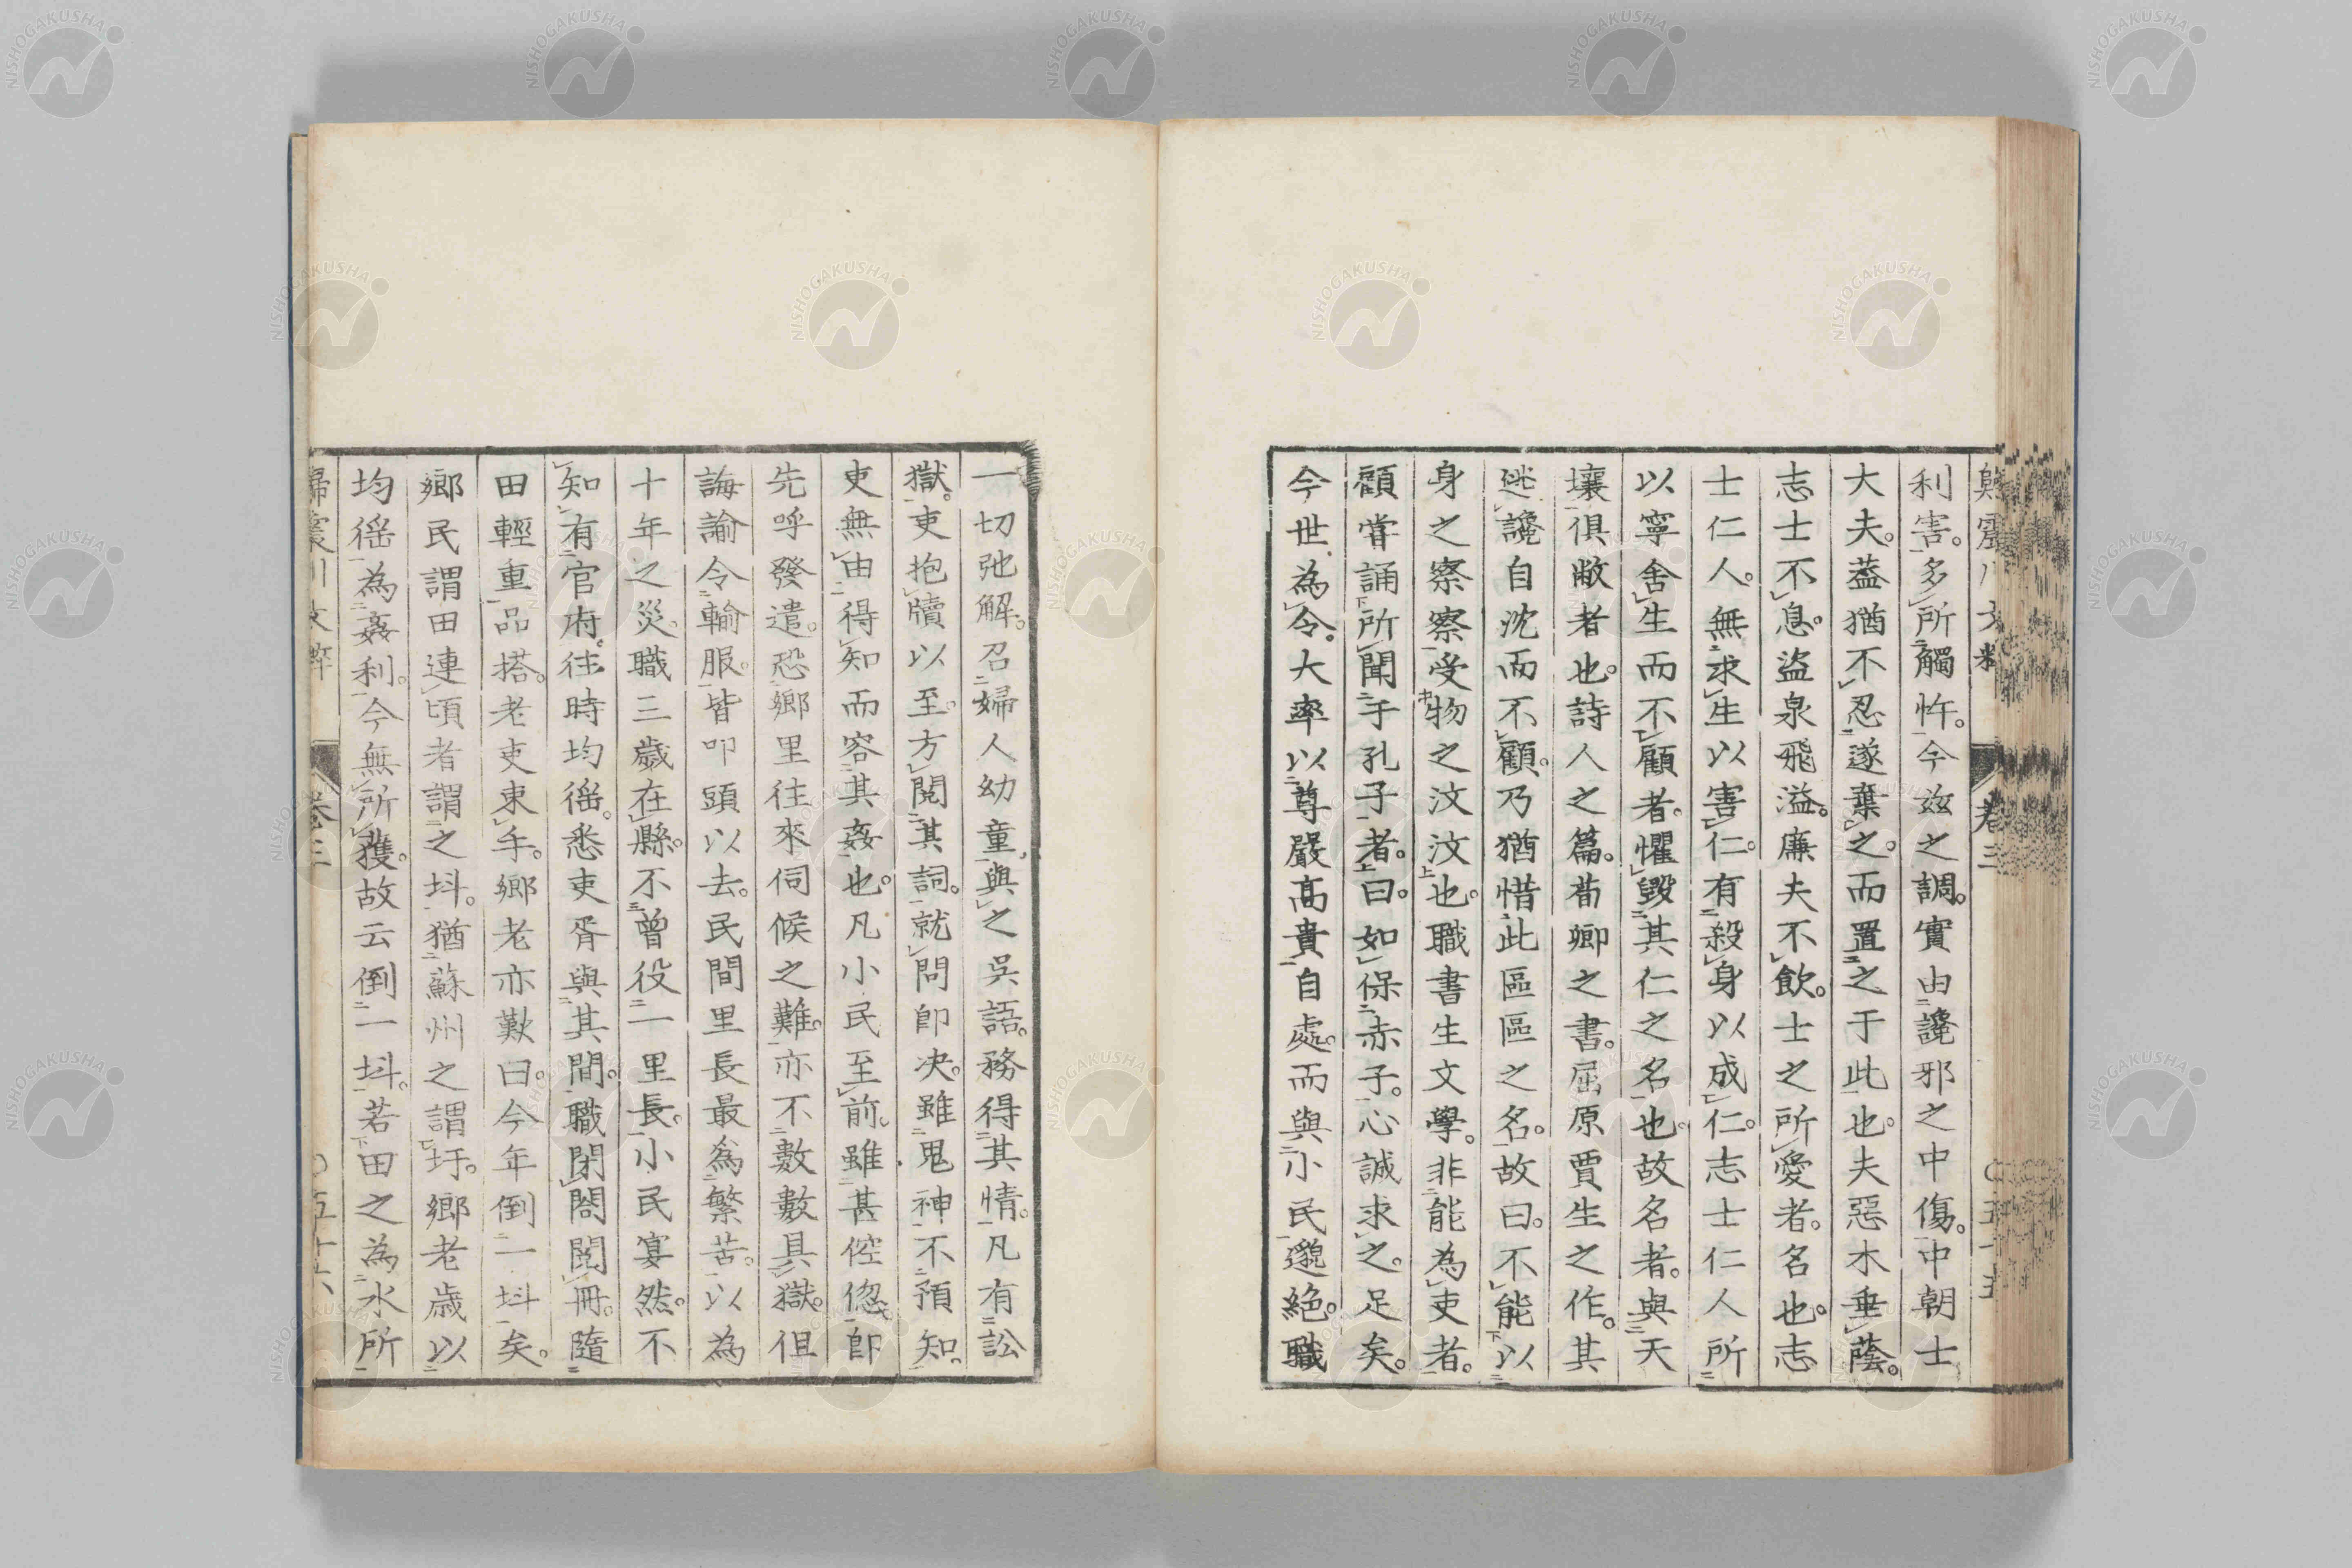 利害。多所觸忤。今玆之調。實由讒邪之中傷。中朝士
大夫。葢猶不忍遂棄之。而置之于此也。夫惡木垂蔭。
志士不息。盜泉飛溢。廉夫不飲。士之所愛者。名也。志
士仁人。無求生以害仁。有殺身以成仁。志士仁人所
以寧舍生而不顧者。懼毀其仁之名也。故名者。與天
壤俱敝者也。詩人之篇。荀卿之書。屈原賈生之作。其
逃讒自沈而不顧。乃猶惜此區區之名。故曰。不能以
身之察察受物之汶汶也。職書生文學。非能為吏者。
顧嘗誦所聞于孔子者。曰。如保赤子。心誠求之。足矣。
今世為令。大率以尊嚴高貴自處。而與小民邈絕。職
一切弛解。召婦人幼童。與之吳語。務得其情。凡有訟
獄。吏抱牘以至。方閱其詞。就問卽决。雖鬼神不預知。
吏無由得知而容其姦也。凡小民至前。雖甚倥偬。卽
先呼發遣。恐鄉里往來伺候之難。亦不數數具獄。但
誨諭令輸服。皆叩頭以去。民間里長最爲繁苦。以為
十年之災。職三歲在縣。不曾役一里長。小民宴然。不
知有官府。往時均徭。悉吏胥與其間。職閉閤閱冊。隨
田輕重品搭。老吏束手。鄉老亦歎曰。今年倒一㘰矣。
鄉民謂田連頃者謂之㘰。猶蘇州之謂圩。鄉老歲以
均徭為姦利。今無所獲。故云倒一㘰。若田之為水所
歸震川文粹 卷三 〇五十六